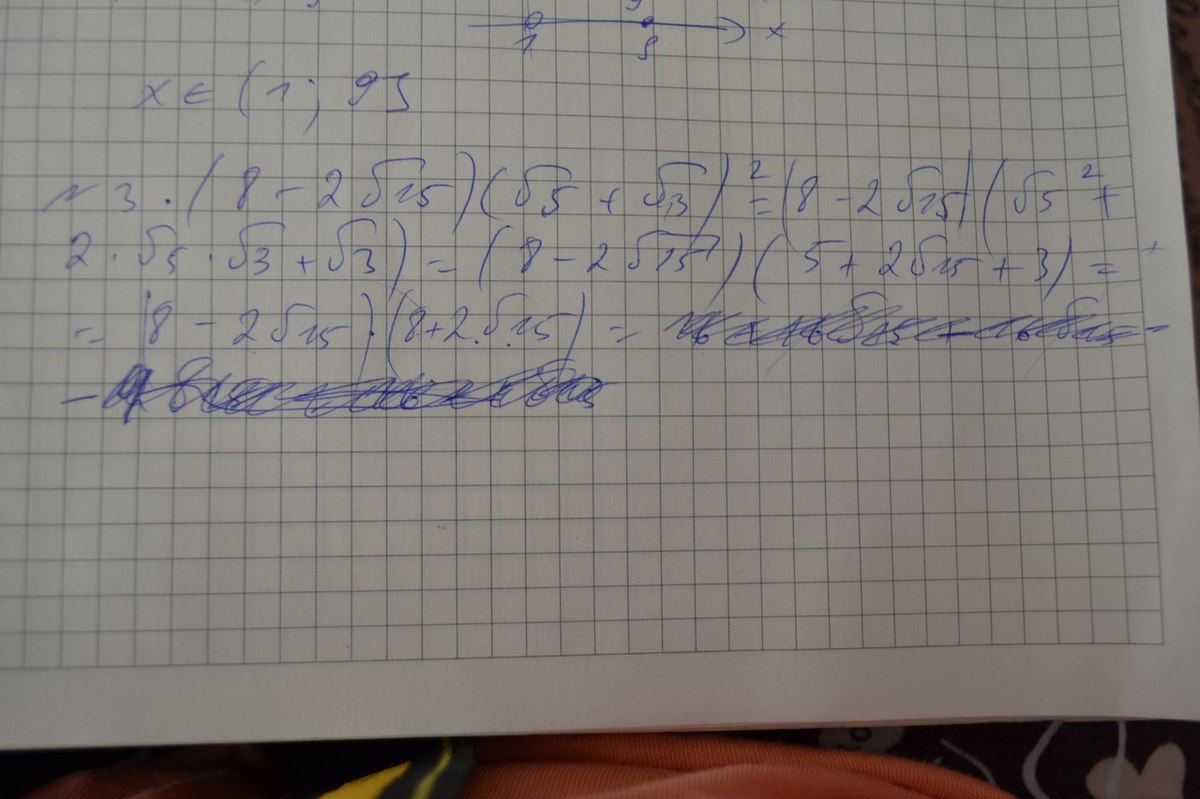 1 9 x
x ∈ (1; 9]
№3. (8 - 2√15)(√5 + √3)² = (8 - 2√15)(√5² +
2·√5·√3 + √3) = (8 - 2√15)(5 + 2√15 + 3) =
= (8 - 2√15)·(8+2·√15) =